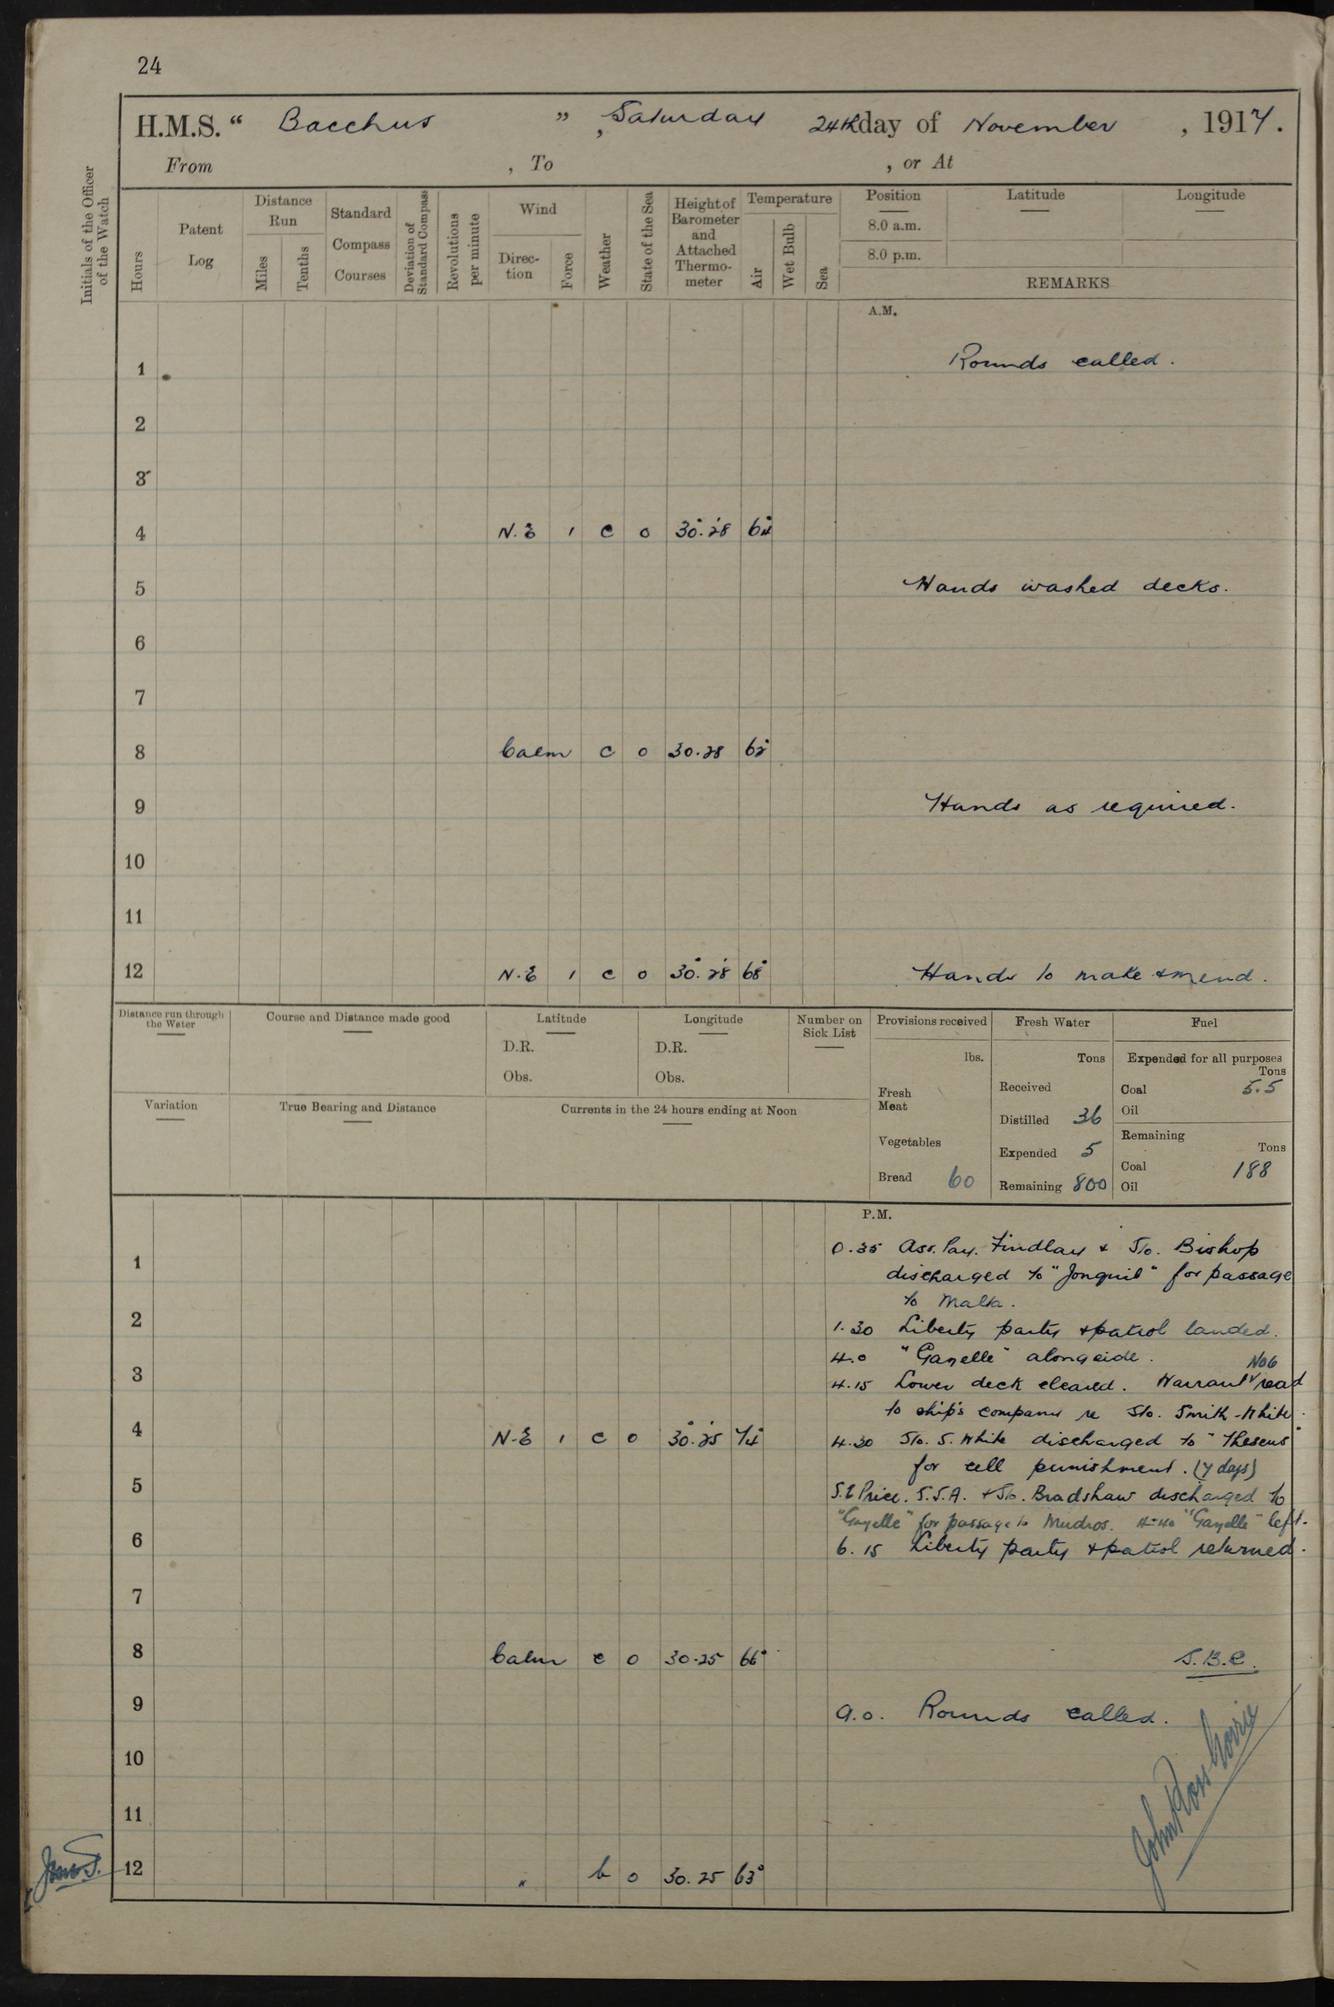 24
H.M.S. “ Bacchus ” , Saturday 24th day of November , 1917.
From , To , or At
Initials of the Officer of the Watch
Hours
Patent Log
Distance Run
Miles
Tenths
Standard Compass Courses
Deviation of Standard Compass
Revolutions per minute
Wind
Direction
Force
Weather
State of the Sea
Height of Barometer and Attached Thermometer
Temperature
Air
Wet Bulb
Sea
Position Latitude Longitude
8.0 a.m.
8.0 p.m.
REMARKS
A.M.
1 Rounds called.
2
3
4 N.E 1 c 0 30.28 64°
5 Hands washed decks.
6
7
8 Calm c 0 30.28 62°
9 Hands as required.
10
11
12 N.E 1 c 0 30.28 68° Hands to make & mend.
Distance run through the Water
Course and Distance made good
Latitude
D.R.
Obs.
Longitude
D.R.
Obs.
Number on Sick List
Variation
True Bearing and Distance
Currents in the 24 hours ending at Noon
Provisions received
lbs.
Fresh Meat
Vegetables
Bread 60
Fresh Water
Tons
Received
Distilled 36
Expended 5
Remaining 800
Fuel
Expended for all purposes
Tons
Coal 5.5
Oil
Remaining
Tons
Coal 188
Oil
P.M.
0.35 Ass. Pay. Findlay & Sto. Bishop
1
discharged to "Jonquil" for passage
to Malta.
2
1.30 Liberty party & patrol landed.
4.0 "Gazelle" alongside.
3
4.15 Lower deck cleared. Warrant No6 read
to ship's company re Sto. Smith-White.
4 N.E 1 c 0 30.25 74°
4.30 Sto. S. White discharged to "Theseus"
for cell punishment. (7 days)
5
S.E Price. S.S.A. & Sto. Bradshaw discharged to
"Gazelle" for passage to Mudros. 4.40 "Gazelle" left.
6
6.15 Liberty party & patrol returned.
7
8 Calm c 0 30.25 66° S.B.C.
9
9.0. Rounds called.
10
11
12 " b 0 30.25 63°